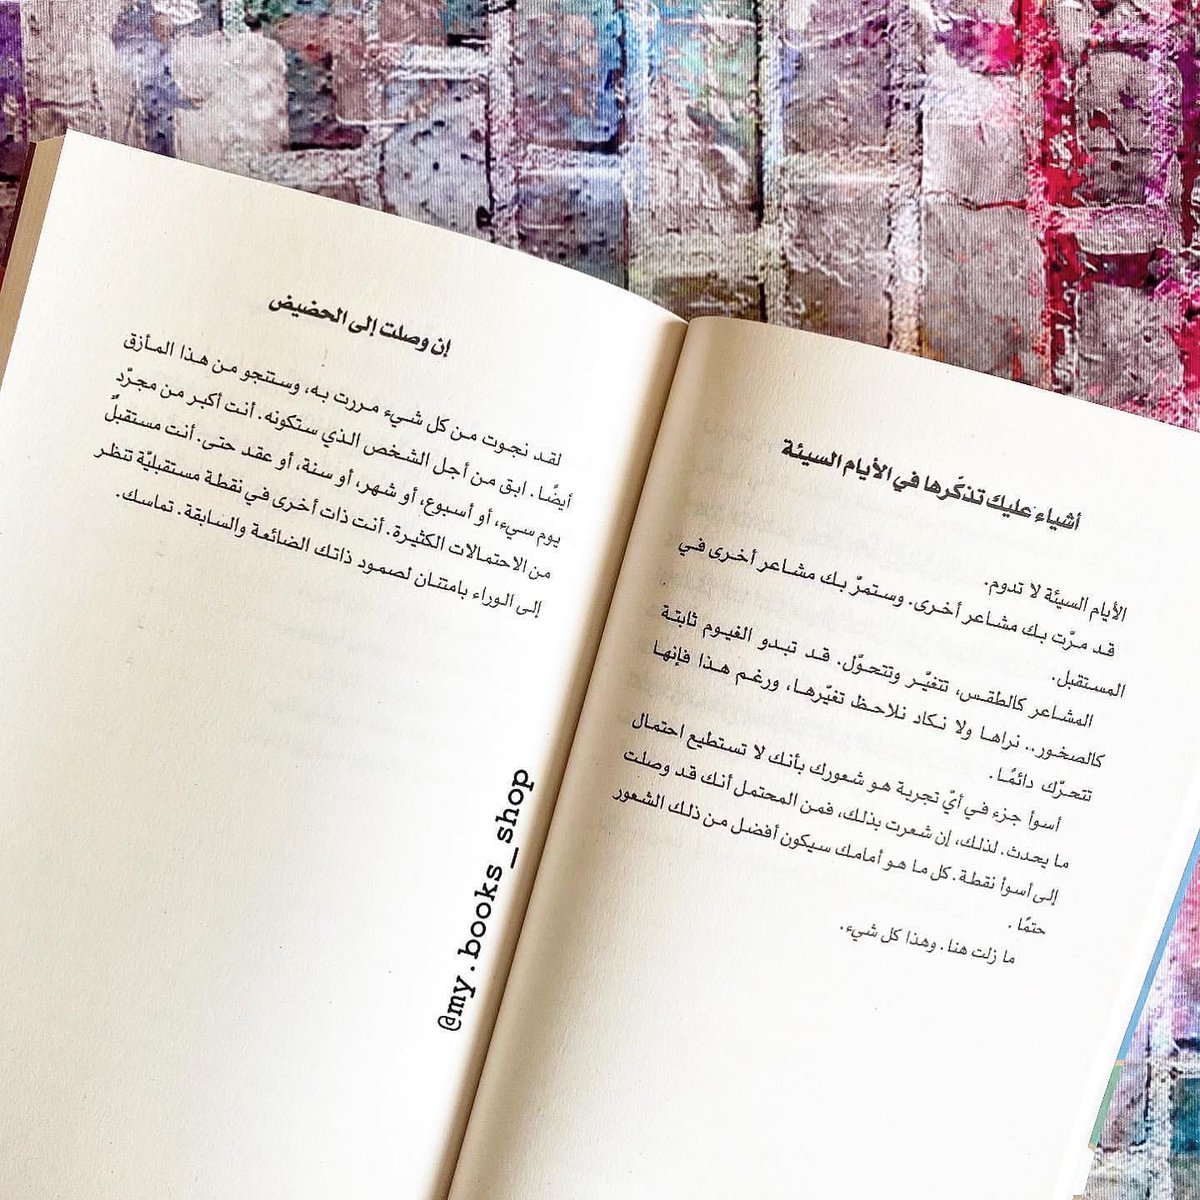 أشياء عليك تذكّرها في الأيام السيئة
الأيام السيئة لا تدوم.
قد مرّت بك مشاعر أخرى. وستمرّ بك مشاعر أخرى في
المستقبل.
المشاعر كالطقس، تتغيّر وتتحوّل. قد تبدو الغيوم ثابتة
كالصخور.. نراها ولا نكاد نلاحظ تغيّرها، ورغم هذا فإنها
تتحرّك دائمًا.
أسوأ جزء في أيّ تجربة هو شعورك بأنك لا تستطيع احتمال
ما يحدث. لذلك، إن شعرت بذلك، فمن المحتمل أنك قد وصلت
إلى أسوأ نقطة. كل ما هو أمامك سيكون أفضل من ذلك الشعور
حتمًا.
ما زلت هنا. وهذا كل شيء.
إن وصلت إلى الحضيض
لقد نجوت من كل شيء مررت به، وستنجو من هذا المأزق
أيضًا. ابق من أجل الشخص الذي ستكونه. أنت أكبر من مجرّد
يوم سيء، أو أسبوع، أو شهر، أو سنة، أو عقد حتى. أنت مستقبلٌ
من الاحتمالات الكثيرة. أنت ذات أخرى في نقطة مستقبليّة تنظر
إلى الوراء بامتنان لصمود ذاتك الضائعة والسابقة. تماسك.
@my.books_shop